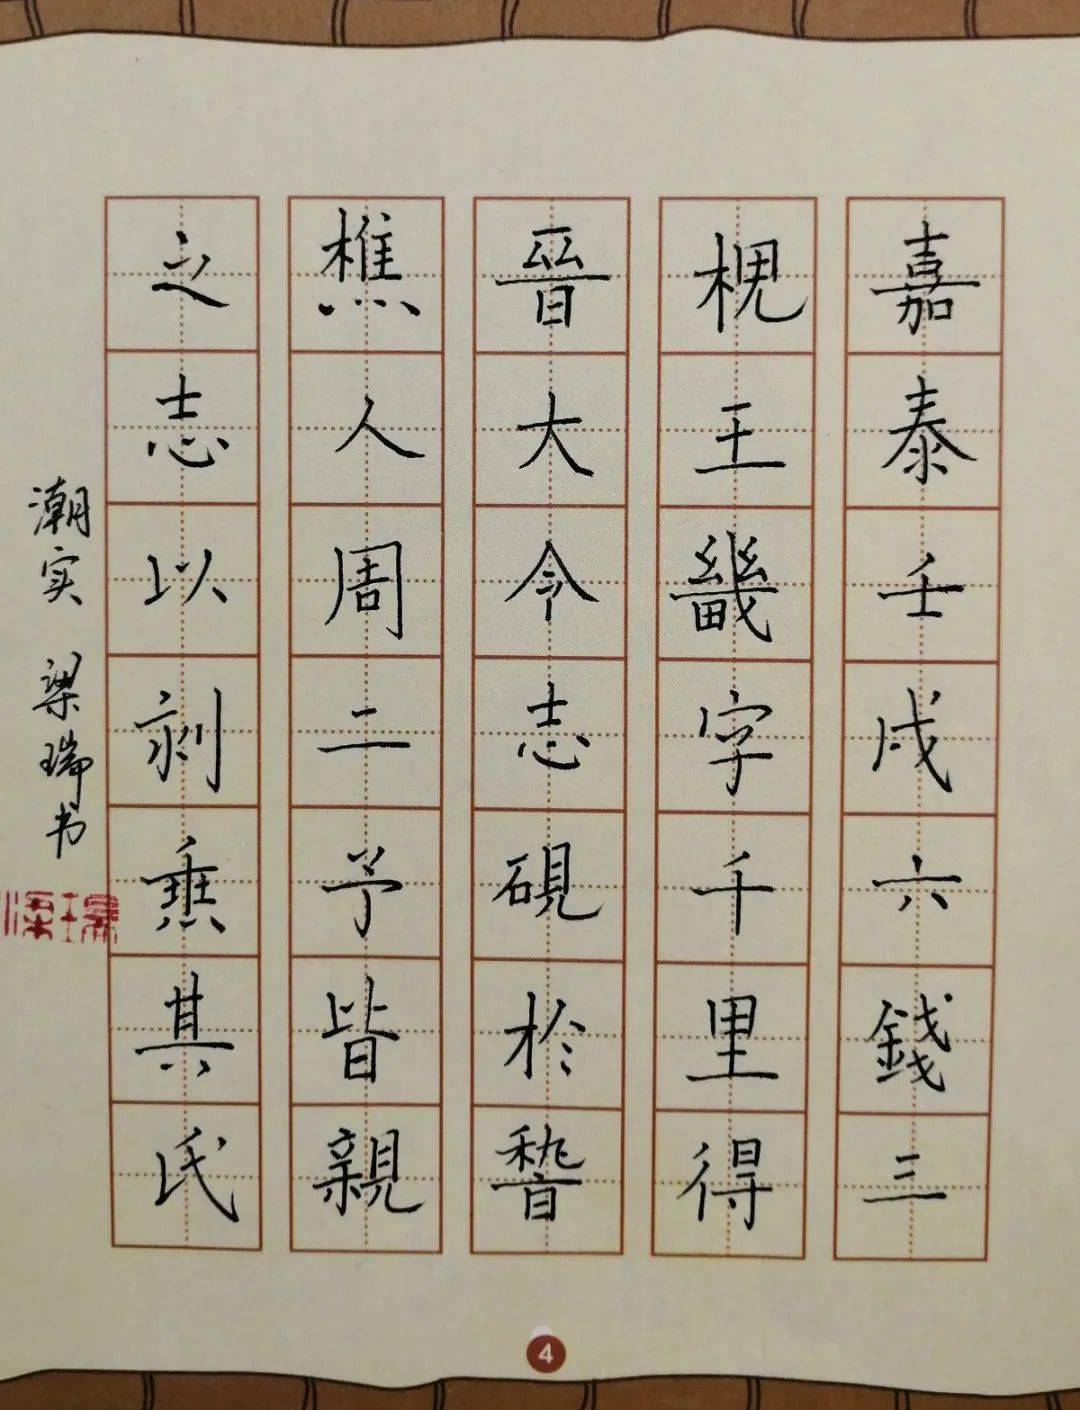 嘉泰壬戌六錢三
槐王畿字千里得
晉大令志硯於稽
樵人周二予皆親
之志以刻垂其氏
潮实 梁瑞书
4